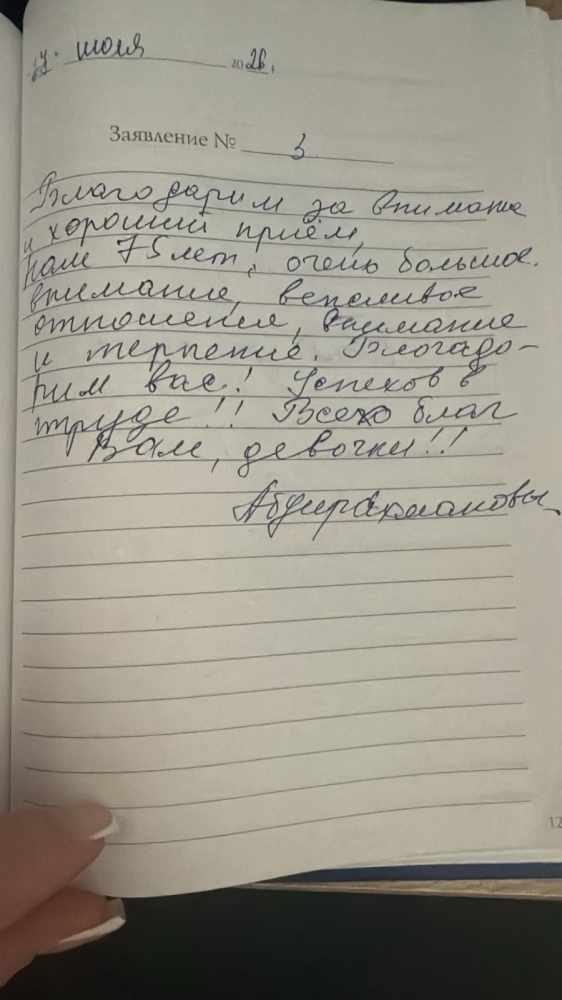 июля 2026,
Заявление № 3
Благодарим за внимание
и хороший приём,
нам 75 лет, очень большое.
внимание, вежливое
отношения, внимание
и терпение. Благадо-
рим вас! Успехов в
труде!! Всехо благ
Вам, девочки!!
Абдирахмановы
12